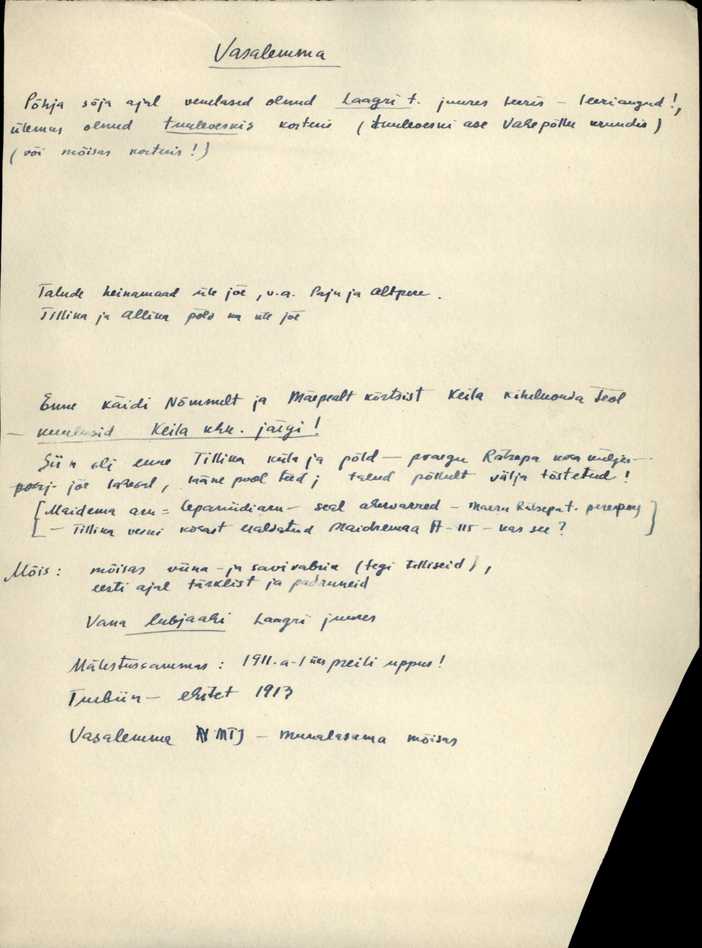 Vasalemma
Põhja sõja ajal venelased olnud Laagri t. juures leeris – leeriaugud!,
ülemus olnud tuuleveskis korteris (tuuleveski ase Vahepõllu krundis)
(või mõisas korteris!)
Talude heinamaad üle jõe, v.a. Paju ja Altpere.
Tillika ja Allika põld ka üle jõe
Enne käidi Nõmmelt ja Mäepealt kõrtsist Keila kihelkonda teol
– kuulusid Keila khk. järgi!
Siin oli enne Tillika küla ja põld – praegu Rätsepa
jõe talud, pool teed; talud põllult välja tõstetud!
[Maidema aru = Lepaniidiaru – seal ahervarred – Rätsepa t. ]
[– Tillika veski kohast Maidremaa A-III – kas see?]
Mõis: mõisas viina- ja savivabrik (tegi telliseid),
eesti ajal tärklist ja
Vana lubjaahi Laagri juures
Mälestussammas: 1911. a. preili uppus!
Turbiin – ehitet 1913
Vasalemma MTJ – munalasama mõisas